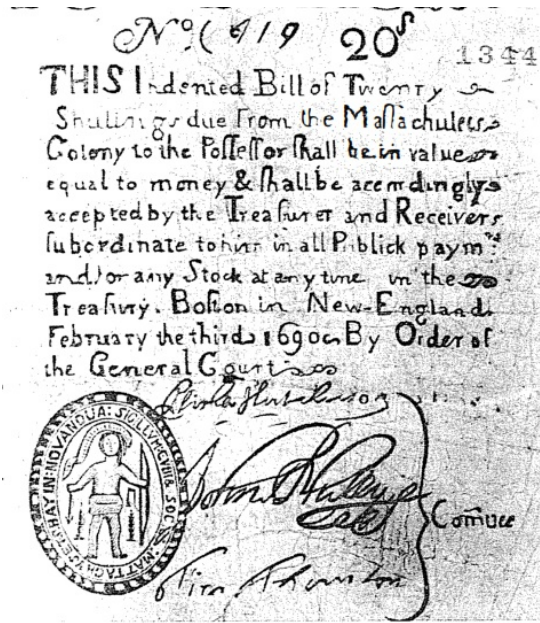 No ( 919 20s
1344
THIS Indented Bill of Twenty
Shillings due from the Maſſachuſets
Colony to the Poſſeſſor ſhall be in value
equal to money & ſhall be accordingly
accepted by the Treaſurer and Receivers
ſubordinate to him in all Publick paymts:
and for any Stock at any time in the
Treaſury. Boſton in New-England
February the third 1690 By Order of
the General Court
Eliſha Hutchinſon
John Walley
Tim Thornton
Comtee
SIGILLUM: GUB & SOC: DE: MATTACHVSETS: BAY: IN: NOVA: ANGLIA: